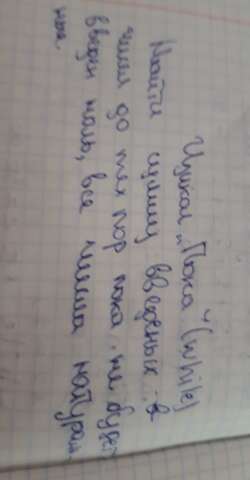 Цикл „Пока" (while)
Найти сумму введеных в
чисел до тех пор пока не будет
введен ноль, все числа натурал
ные.